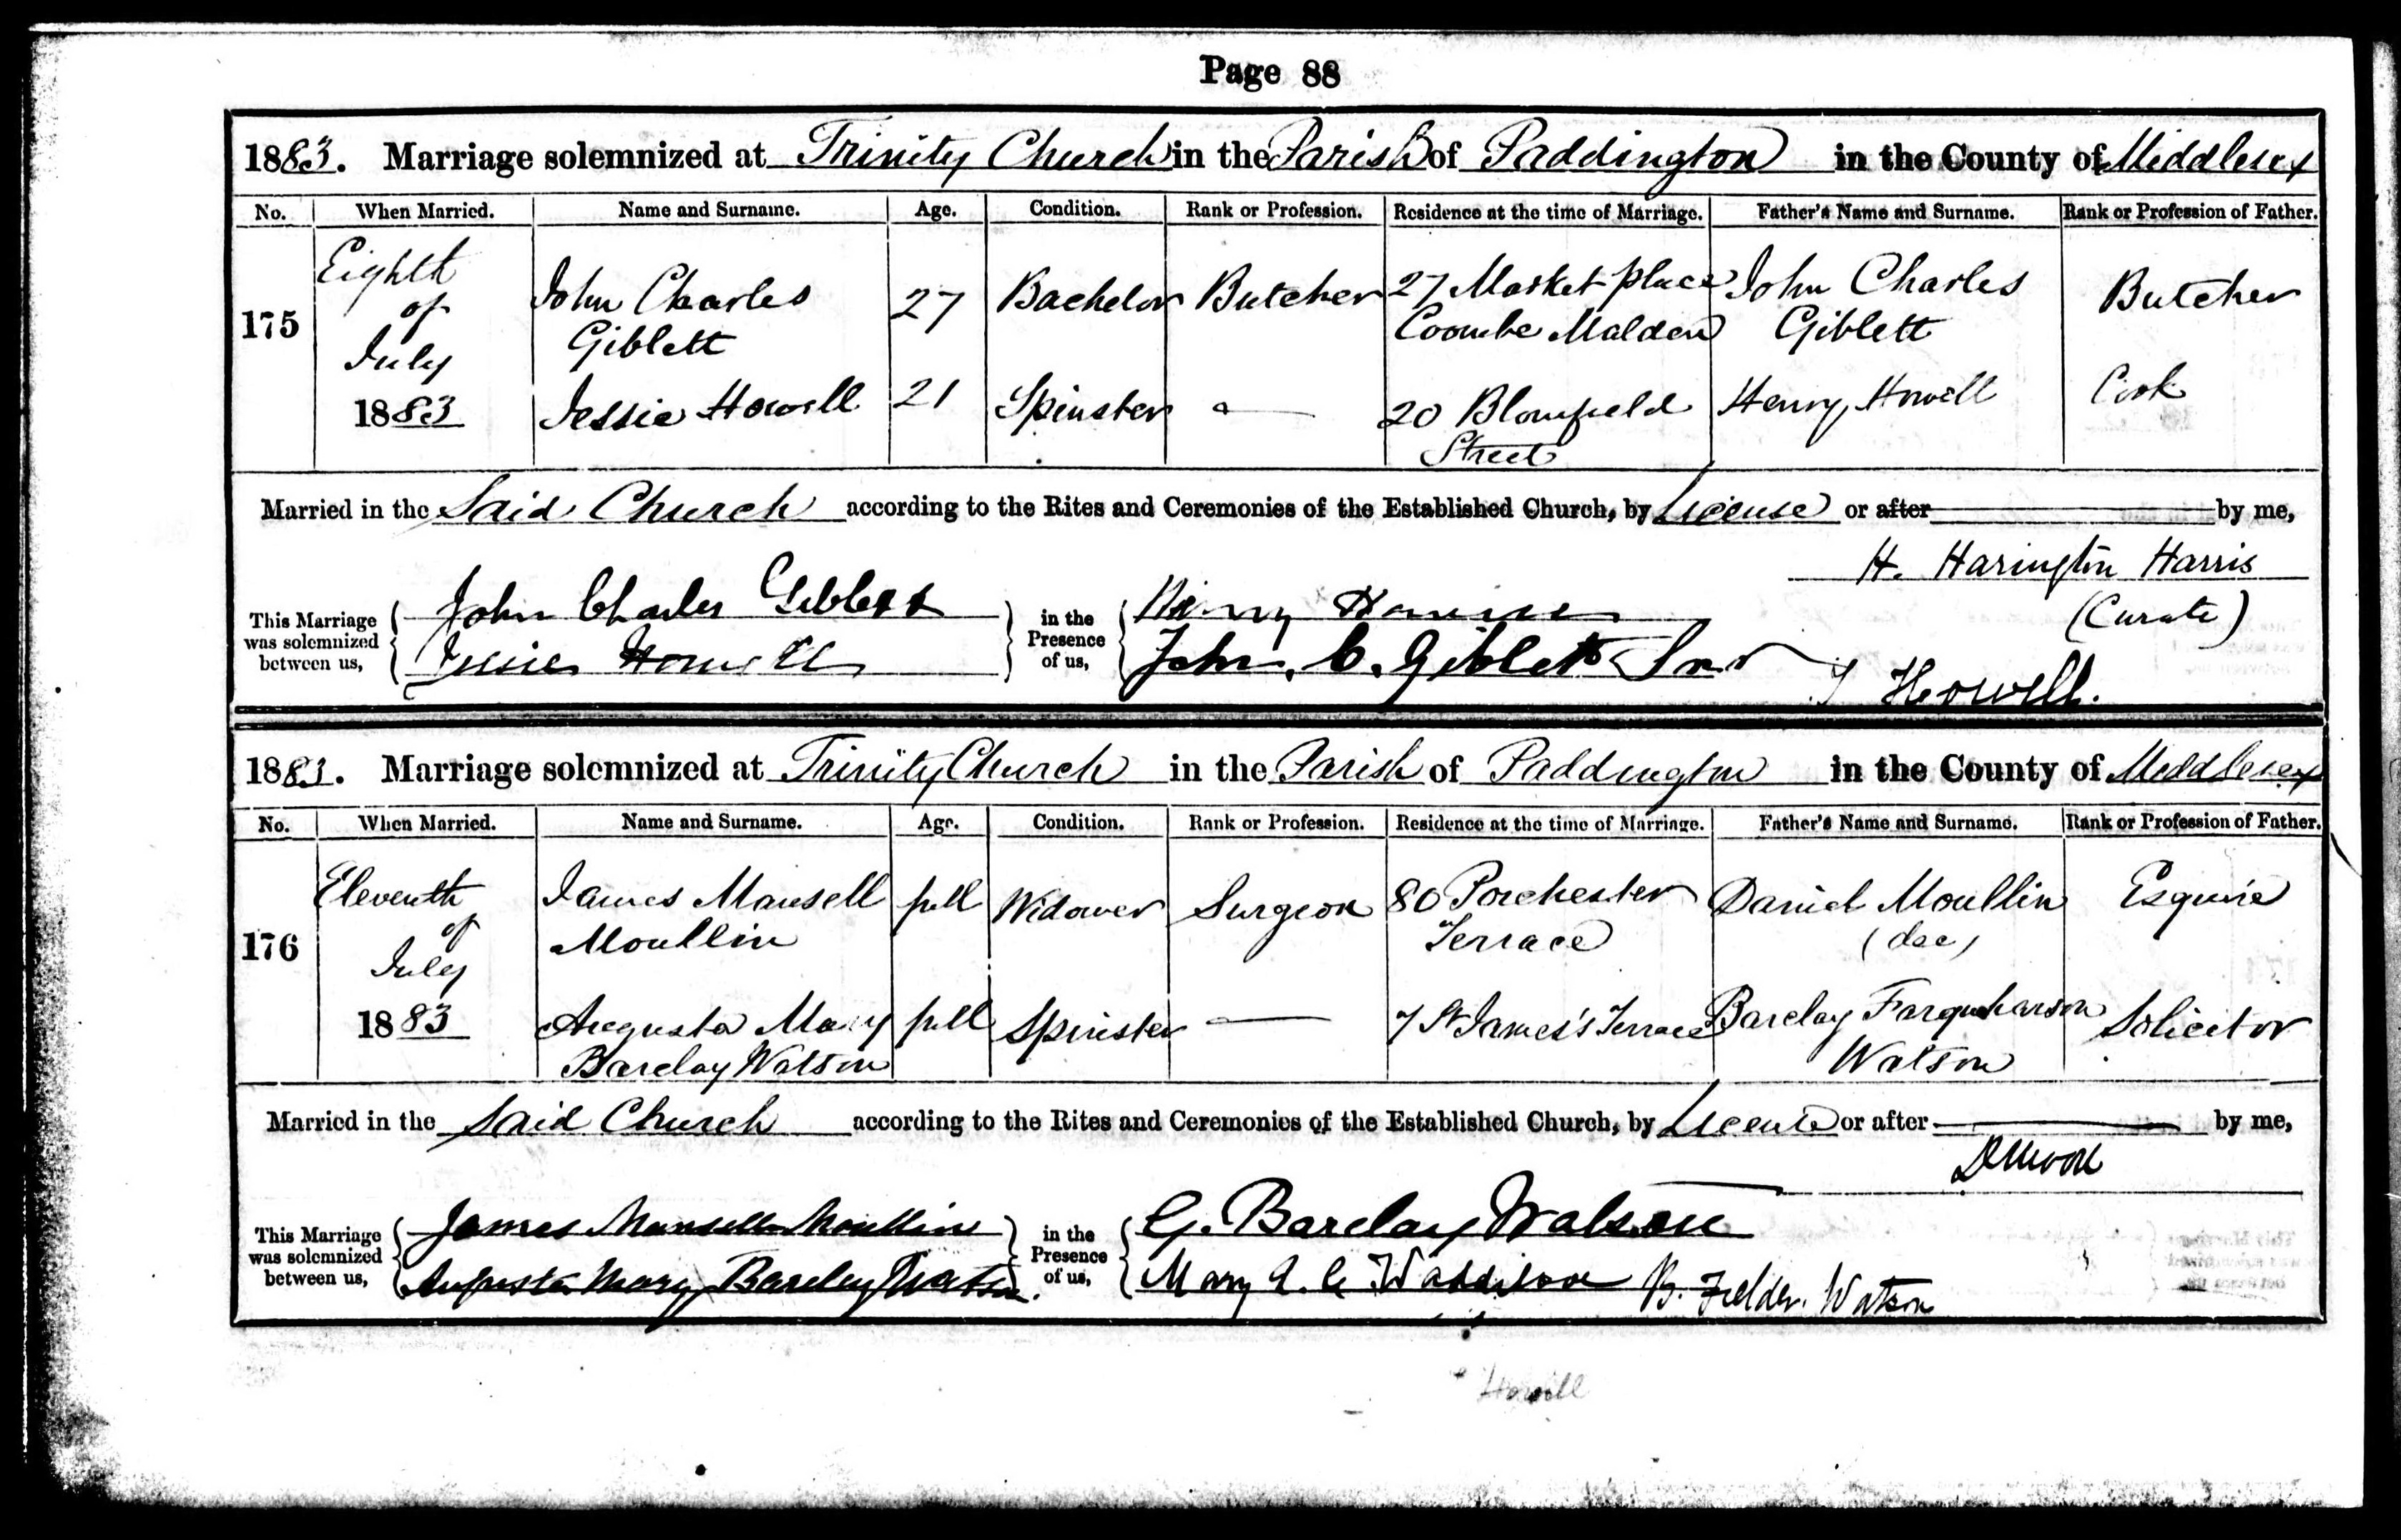 Page 88
1883. Marriage solemnized at Trinity Church in the Parish of Paddington in the County of Middlesex
No. When Married. Name and Surname. Age. Condition. Rank or Profession. Residence at the time of Marriage. Father's Name and Surname. Rank or Profession of Father.
175 Eighth of July 1883 John Charles Giblett 27 Bachelor Butcher 27 Market place Coombe Malden John Charles Giblett Butcher
Jessie Howell 21 Spinster — 20 Blomfield Street Henry Howell Cook
Married in the Said Church according to the Rites and Ceremonies of the Established Church, by License or after by me,
H. Harington Harris
(Curate)
This Marriage was solemnized between us, John Charles Giblett in the Presence of us, Henry
Jessie Howell John. C. Giblett Snr Howell.
1883. Marriage solemnized at Trinity Church in the Parish of Paddington in the County of Middlesex
No. When Married. Name and Surname. Age. Condition. Rank or Profession. Residence at the time of Marriage. Father's Name and Surname. Rank or Profession of Father.
176 Eleventh of July 1883 James Mansell Moullin full Widower Surgeon 80 Porchester Terrace Daniel Moullin (dec) Esquire
Augusta Mary Barclay Watson full Spinster — 7 St James's Terrace Barclay Farquharson Watson Solicitor
Married in the Said Church according to the Rites and Ceremonies of the Established Church, by License or after by me,
This Marriage was solemnized between us, James Mansell Moullin in the Presence of us, G. Barclay Watson
Augusta Mary Barclay Watson. Mary B. Fielder. Watson
Howell